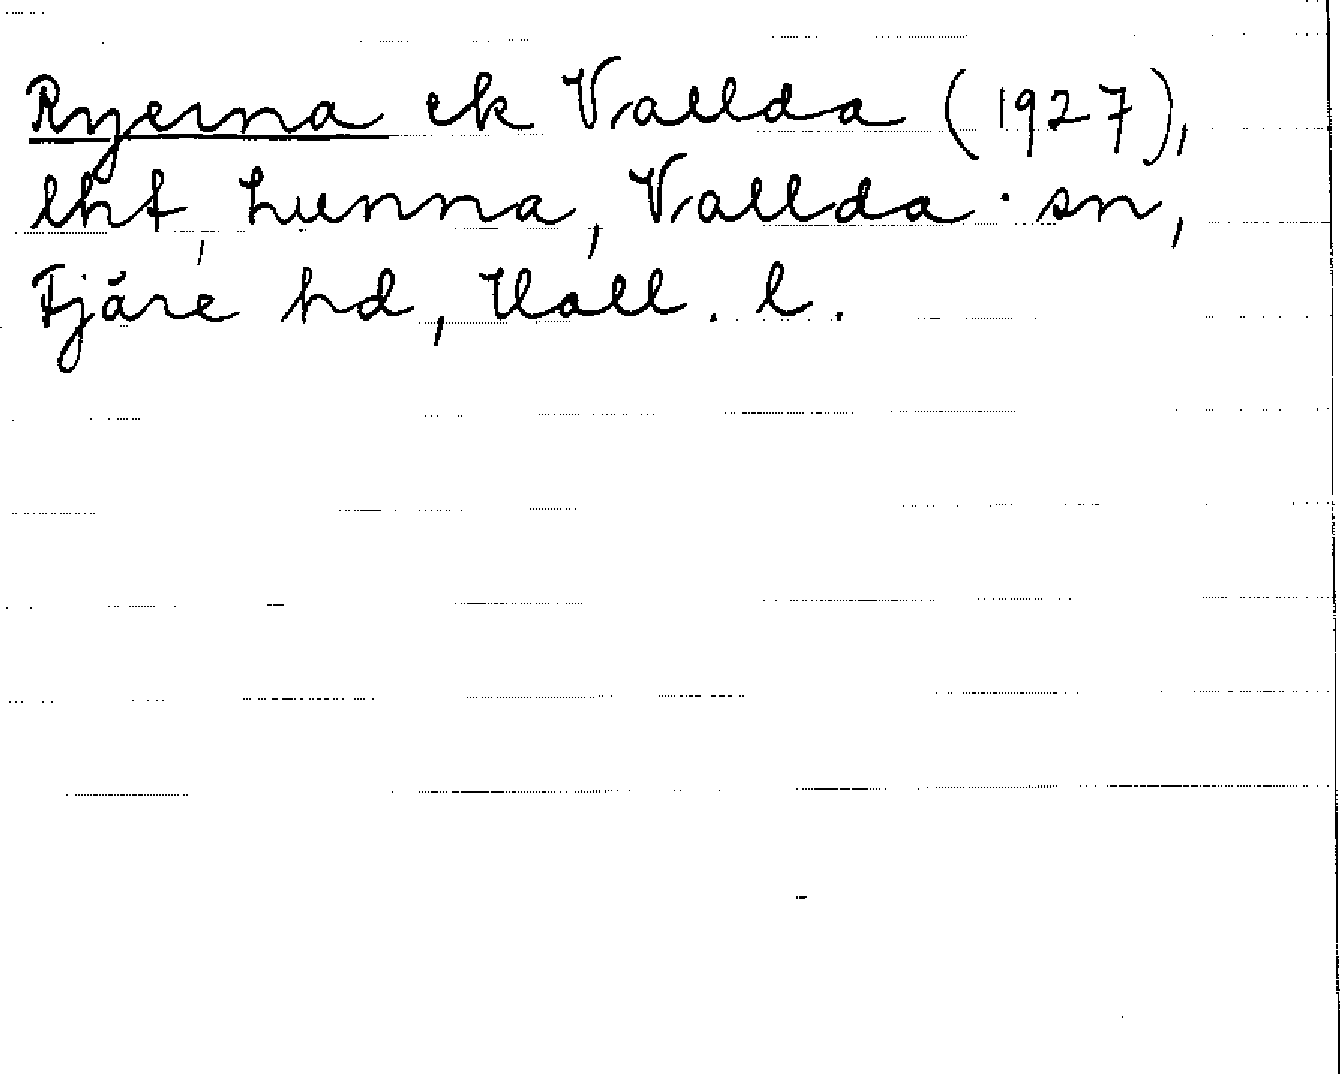 Ryerna ek Vallda (1927),
lht, Lunna, Vallda sn,
Fjäre hd, Hall. l.